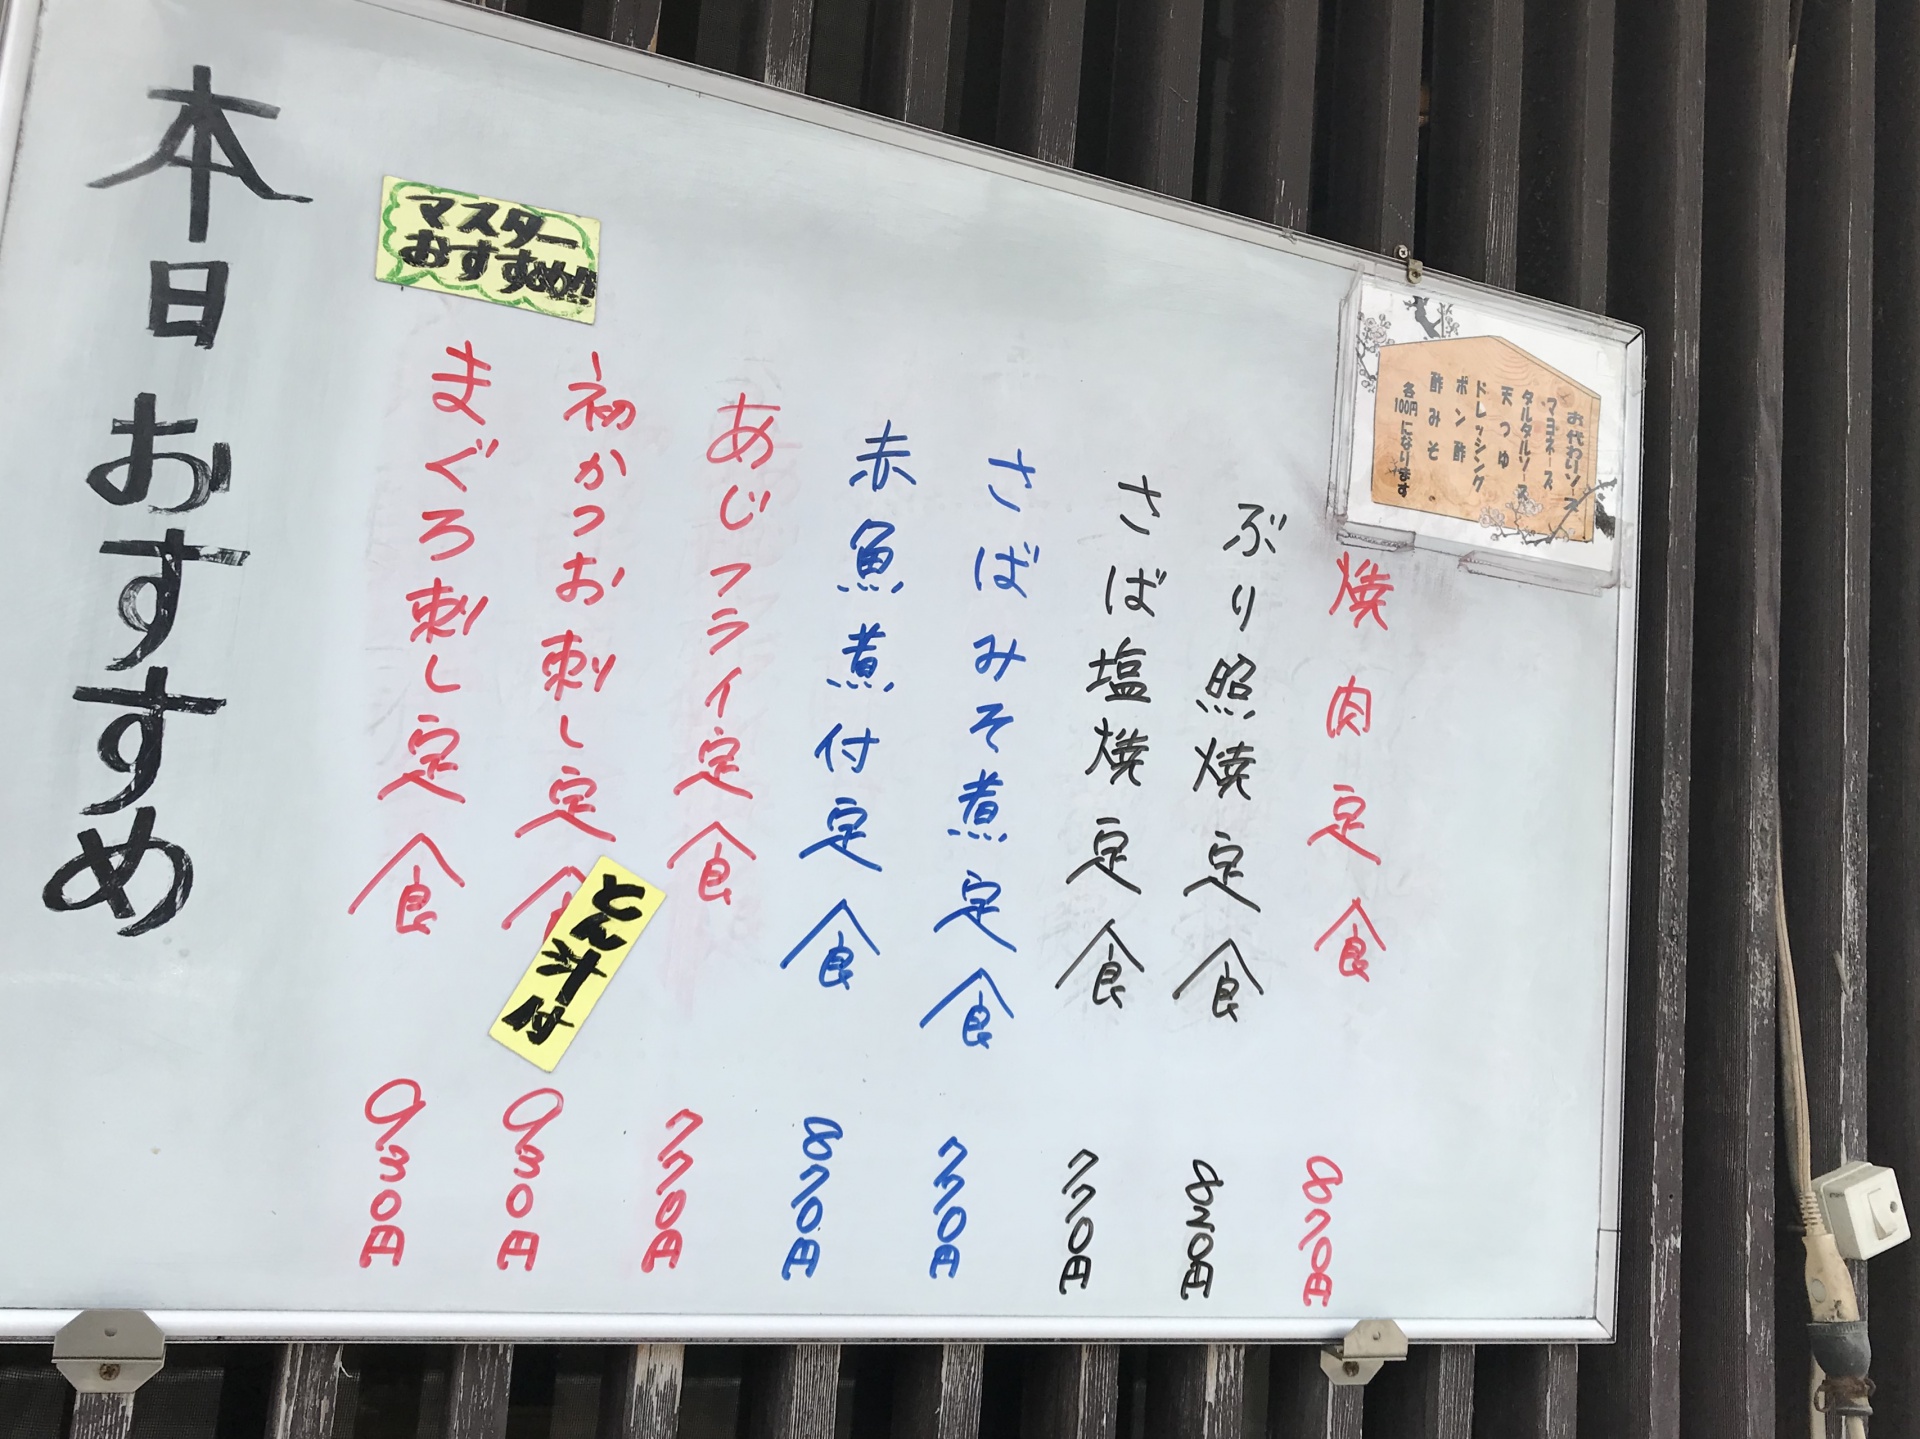 本日おすすめ
マスター
おすすめ!!
まぐろ刺し定食 930円
初かつお刺し定食 930円
とん汁付
あじフライ定食 770円
赤魚煮付定食 870円
さばみそ煮定食 770円
さば塩焼定食 770円
ぶり照焼定食 820円
焼肉定食 870円
お代わりソース
マヨネーズ
タルタルソース
天つゆ
ドレッシング
ポン酢
酢みそ
各100円になります